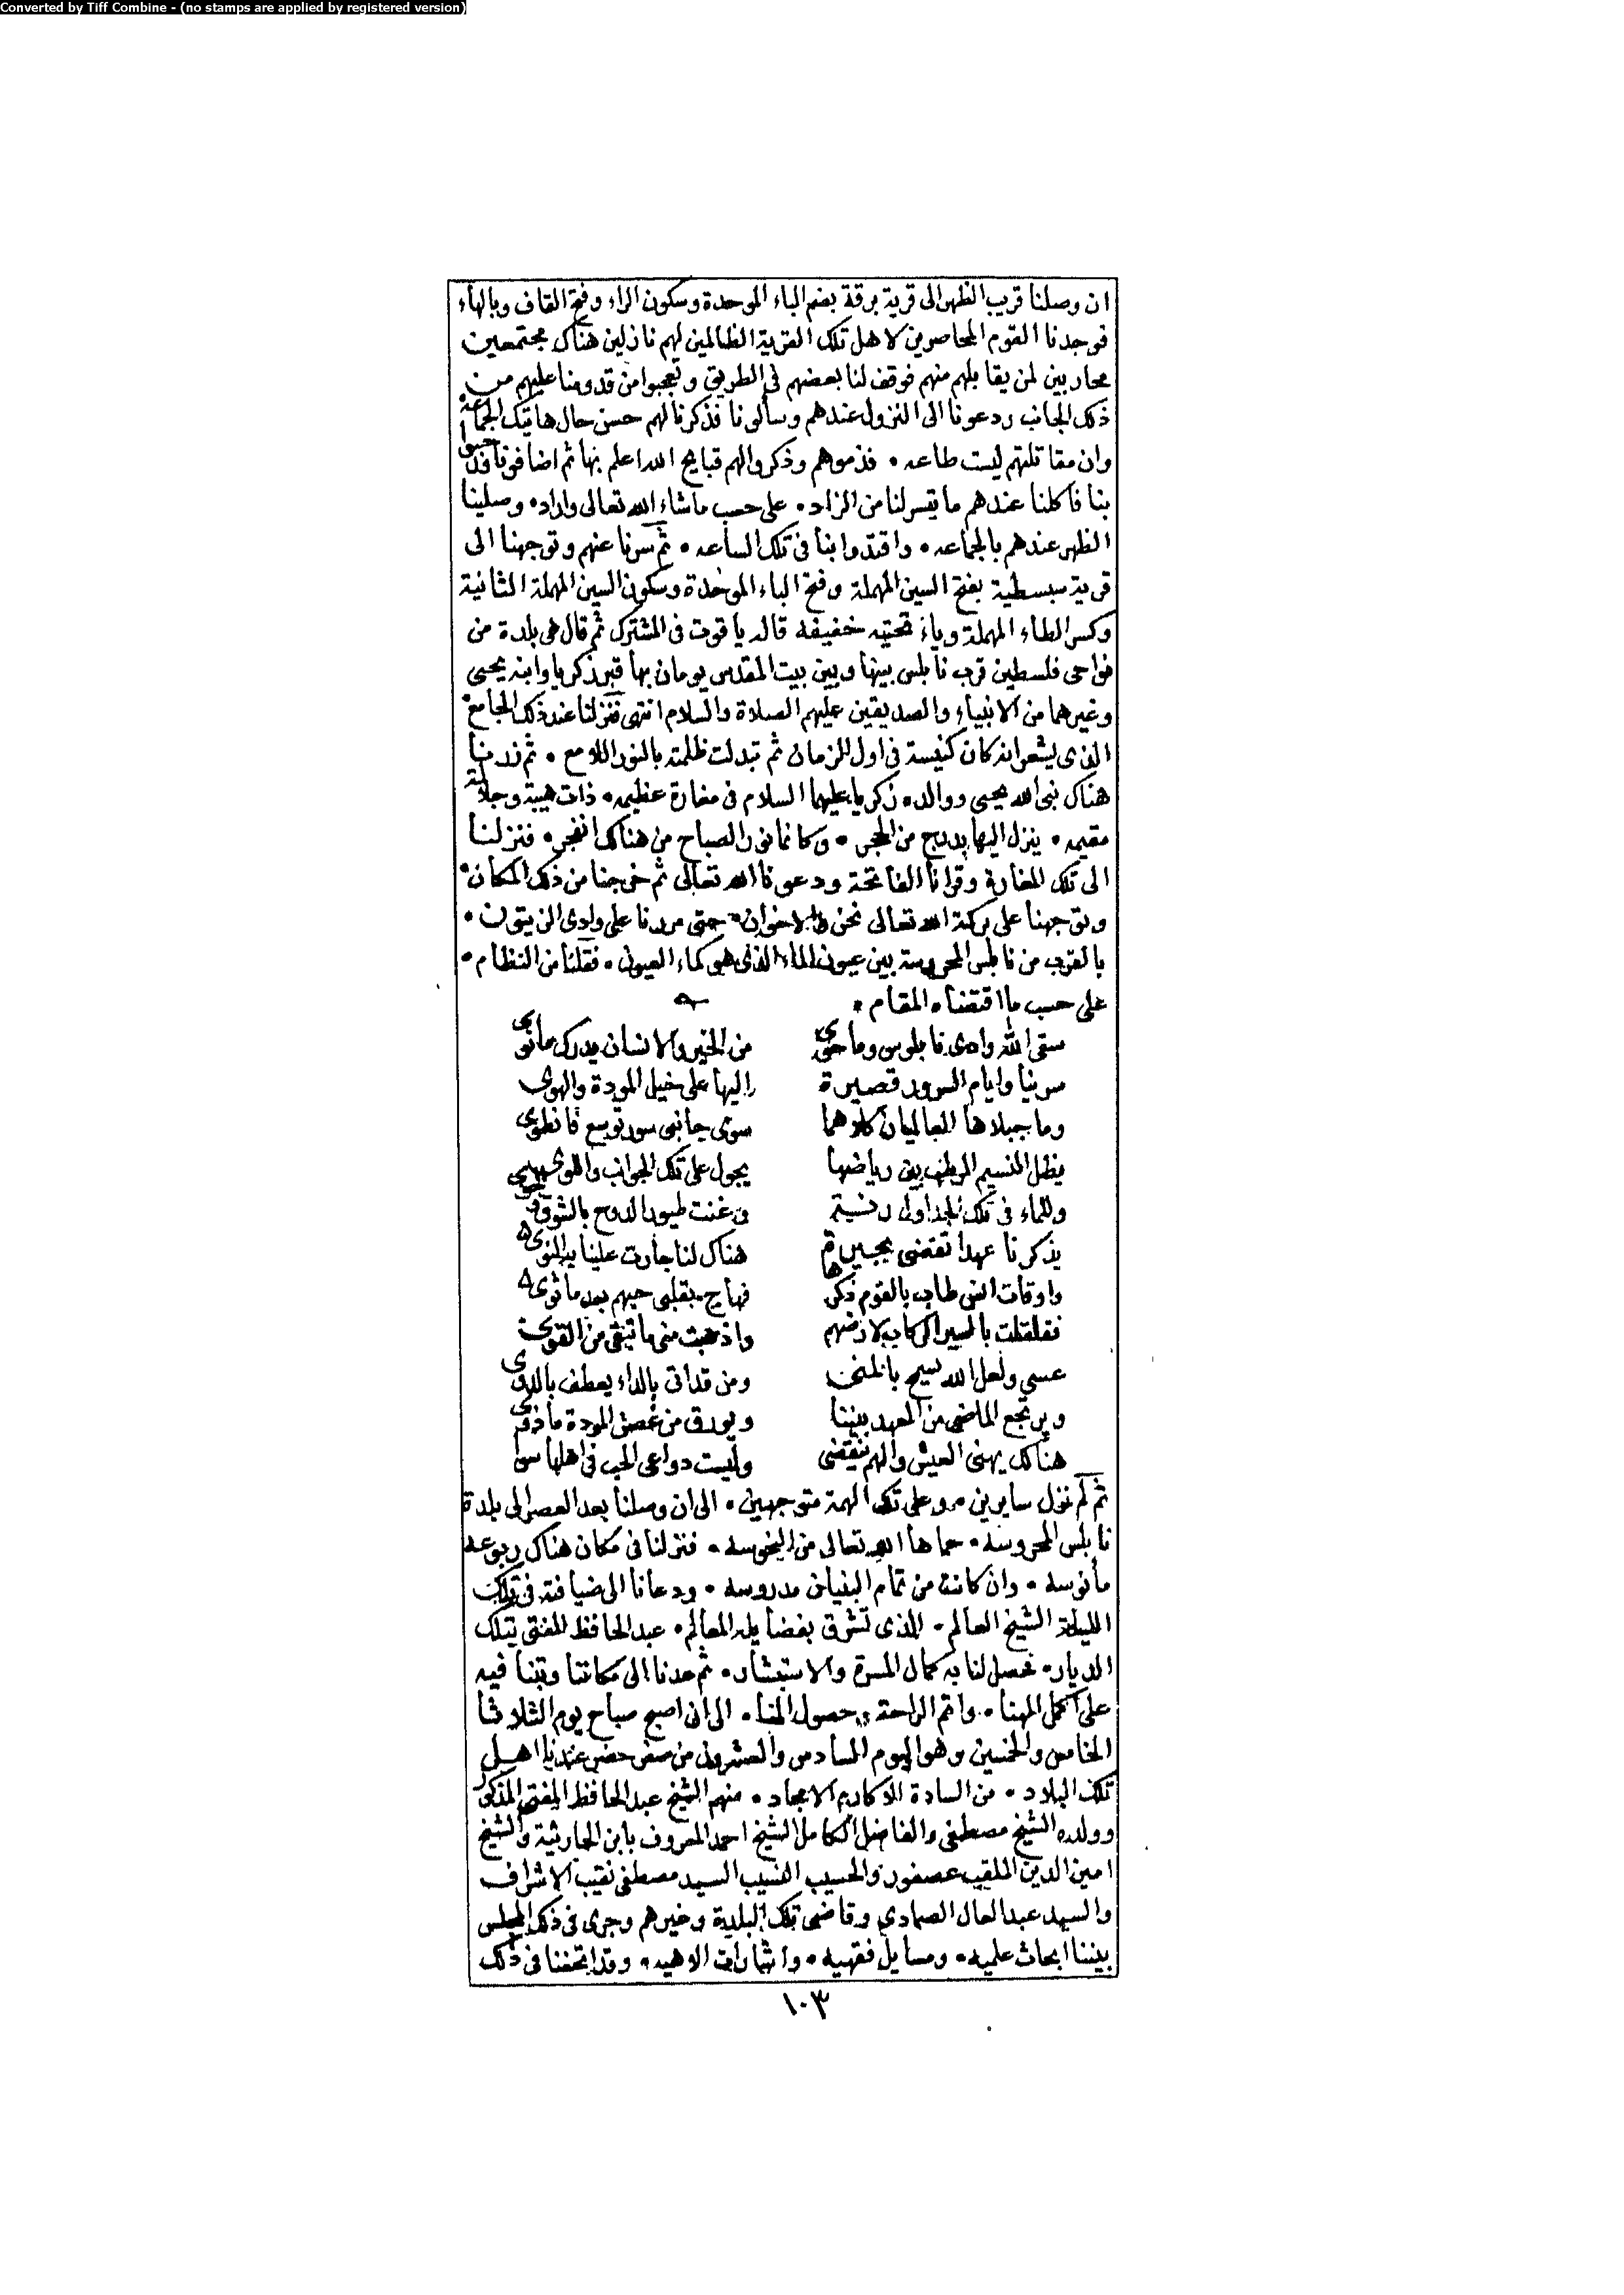 Converted by Tiff Combine - (no stamps are applied by registered version)
ان وصلنا قريب الظهر الى قرية برقة بضم الباء الموحدة وسكون الراء وفتح القاف وبالهاء
فوجدنا القوم المحاصرين لاهل تلك القرية الظالمين لهم نازلين هناك مجتمعين
محاربين لمن يقابلهم منهم فوقف لنا بعضهم في الطريق وتعجبوا من قدومنا عليهم من
ذلك الجانب ودعونا الى النزول عندهم وسألونا فذكرنا لهم حسن حال هاتيك الجماعة
وان مقاتلتهم ليست طاعه • فذموهم وذكروا لهم قبايح الله اعلم بها ثم اضافونا فرحبوا
بنا فاكلنا عندهم ما يتيسر لنا من الزاد • على حسب ما شاء الله تعالى واراد • وصلينا
الظهر عندهم بالجماعه • واقتدوا بنا في تلك الساعه • ثم سرنا عنهم وتوجهنا الى
قرية سبسطية بفتح السين المهملة وفتح الباء الموحدة وسكون السين المهملة الثانية
وكسر الطاء المهملة وياء تحتيه خفيفه قاله ياقوت في المشترك ثم قال هي بلدة من
نواحي فلسطين قرب نابلس بينها وبين بيت المقدس يومان بها قبر زكريا وابنه يحيى
وغيرهما من الانبياء والصديقين عليهم الصلاة والسلام انتهى فنزلنا عند ذلك الجامع •
الذي يشعر انه كان كنيسة في اول الزمان ثم تبدلت ظلمته بالنور اللامع • ثم زرنا
هناك نبي الله يحيى ووالده زكريا عليهما السلام في مغارة عظيمه • ذات هيبة وجلالة
مقيمه • ينزل اليها بدرج من الحجر • وكانما نور الصباح من هناك انفجر • فنزلنا
الى تلك المغارة وقرانا الفاتحة ودعونا الله تعالى ثم خرجنا من ذلك المكان •
وتوجهنا على بركة الله تعالى نحن والاخوان • حتى مررنا على وادى الزيتون •
بالقرب من نابلس المحروسة بين عيون الماء الذي هو كماء العيون • فقلنا من النظام •
على حسب ما اقتضاه المقام •
سقى الله وادى نابلوس وما حوى من الخير والانسان يدرك ما نوى
سرينا وايام السرور قصيرة اليها على خيل المودة والهوى
وما جبلاها العاليان كلاهما سوى جانبي سور توسع فانطوى
يظل النسيم الرطب بين رياضها يجول على تلك الجوانب واللوى
وللماء في تلك الجداول رنة وغنت طيور الدوح بالشوق والجوى
يذكرنا عهدا تقضى بجيرة هناك لنا جارت علينا يد النوى
واوقات انس طاب بالقوم ذكرها فهاج بقلبي حبهم بعد ما ثوى
فقلقلت بالسير الركاب لارضهم واذهبت مني ما تبقى من القوى
عسى ولعل الله يسمح بالمنى ومن قد اتى بالداء يعطف بالدوى
ويرتجع الماضي من العهد بيننا ويورق من غصن المودة ما ذوى
هنالك يهنى العيش والهم ينقضي وليست دواعي الحب في اهلها سوا
ثم لم نزل سايرين وعلى تلك الهمة متوجهين • الى ان وصلنا بعد العصر الى بلدة
نابلس المحروسه • حماها الله تعالى من النحوسه • فنزلنا في مكان هناك ربوعه
مأنوسه • وان كانت من تمام البنيان مدروسه • ودعانا الى ضيافته في تلك
الليلة الشيخ العالم • الذي تشرق بفضايله المعالم • عبد الحافظ المفتي بتلك
الديار • فحصل لنا به كمال المسرة والاستبشار • ثم عدنا الى مكاننا وبتنا فيه
على اكمل الهنا • واتم الراحة وحصول المنا • الى ان اصبح صباح يوم الثلاثا
الخامس والخمسين وهو اليوم السادس والعشرون من صفر حضر عندنا اهل
تلك البلاد • من السادة الاكارم الامجاد • منهم الشيخ عبد الحافظ المفتي المذكور
وولده الشيخ مصطفى والفاضل الكامل الشيخ احمد المعروف بابن الحارثية والشيخ
امين الدين الملقب عصفور والحسيب النسيب السيد مصطفى نقيب الاشراف
والسيد عبد العال الصمادي وقاضي تلك البلدة وغيرهم وجرى في ذلك المجلس
بيننا ابحاث علميه • ومسايل فقهيه • واشارات الاهيه • وقد اتحفنا في ذلك
١٠٣